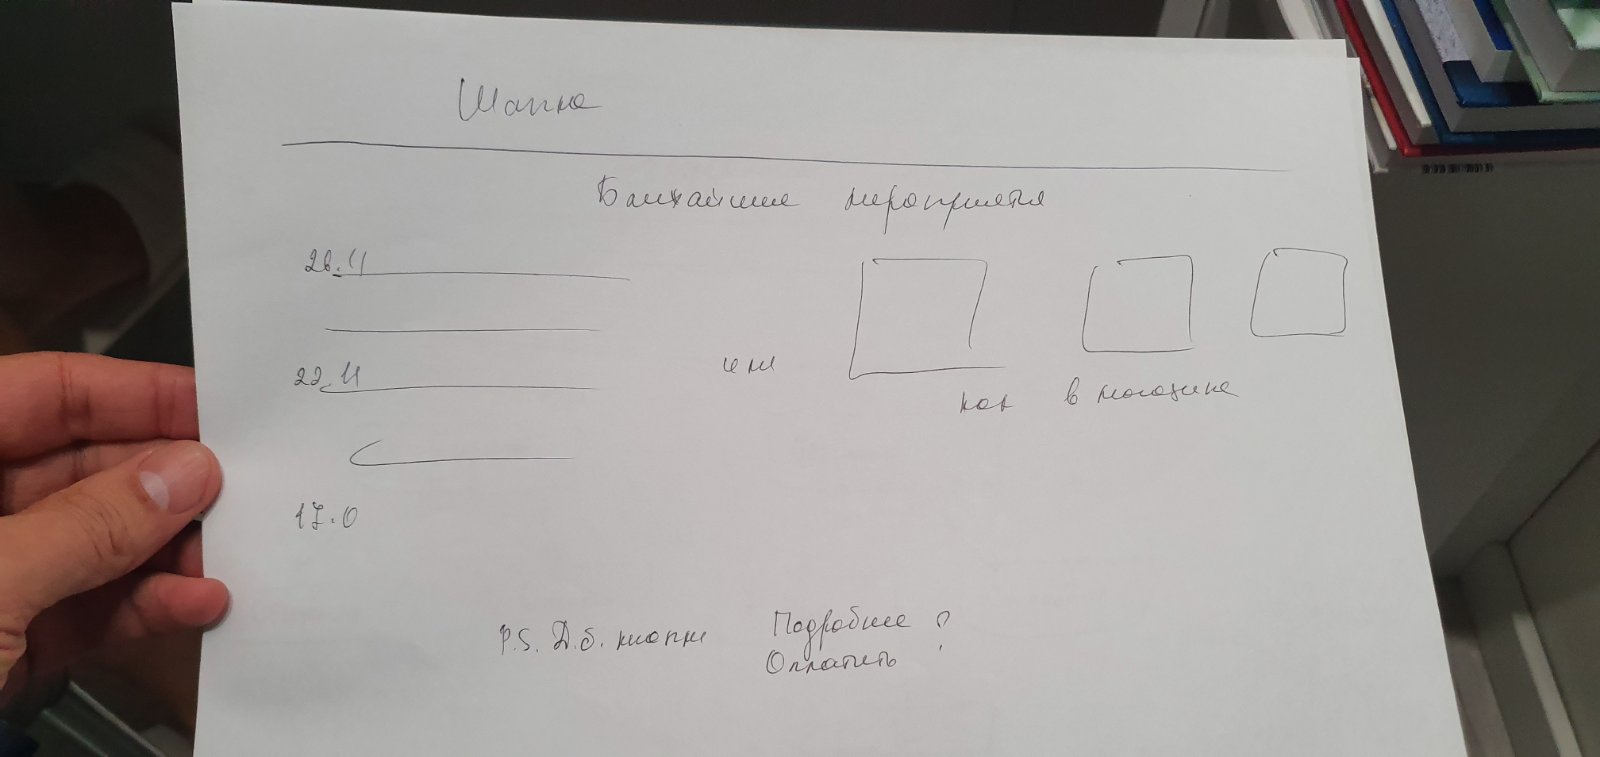 Шапка
Ближайшие мероприятия
26.11
22.11
или
как в магазине
17.0
P.S. Д.б. кнопки Подробнее ?
Оплатить ?